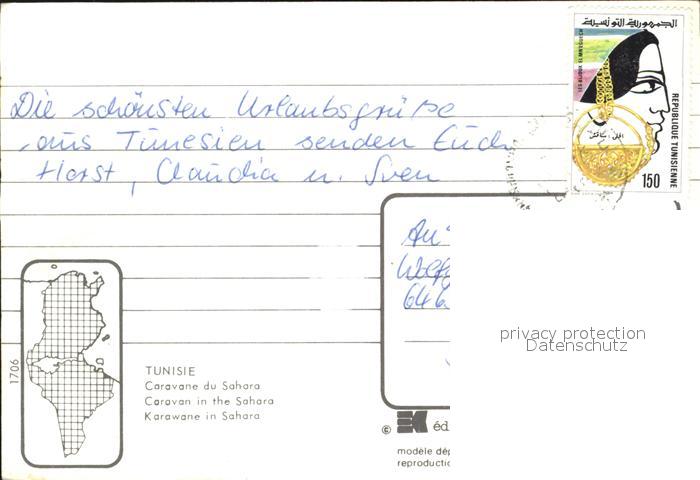 الجمهورية التونسية
LES BIJOUX EL MNAGUECH
REPUBLIQUE TUNISIENNE
150
Die schönsten Urlaubsgrüße
aus Tunesien senden Euch
Horst, Claudia u. Sven
An
Wolfg
646
privacy protection
Datenschutz
1706
TUNISIE
Caravane du Sahara
Caravan in the Sahara
Karawane in Sahara
© EK éd
modèle dép
reproductio